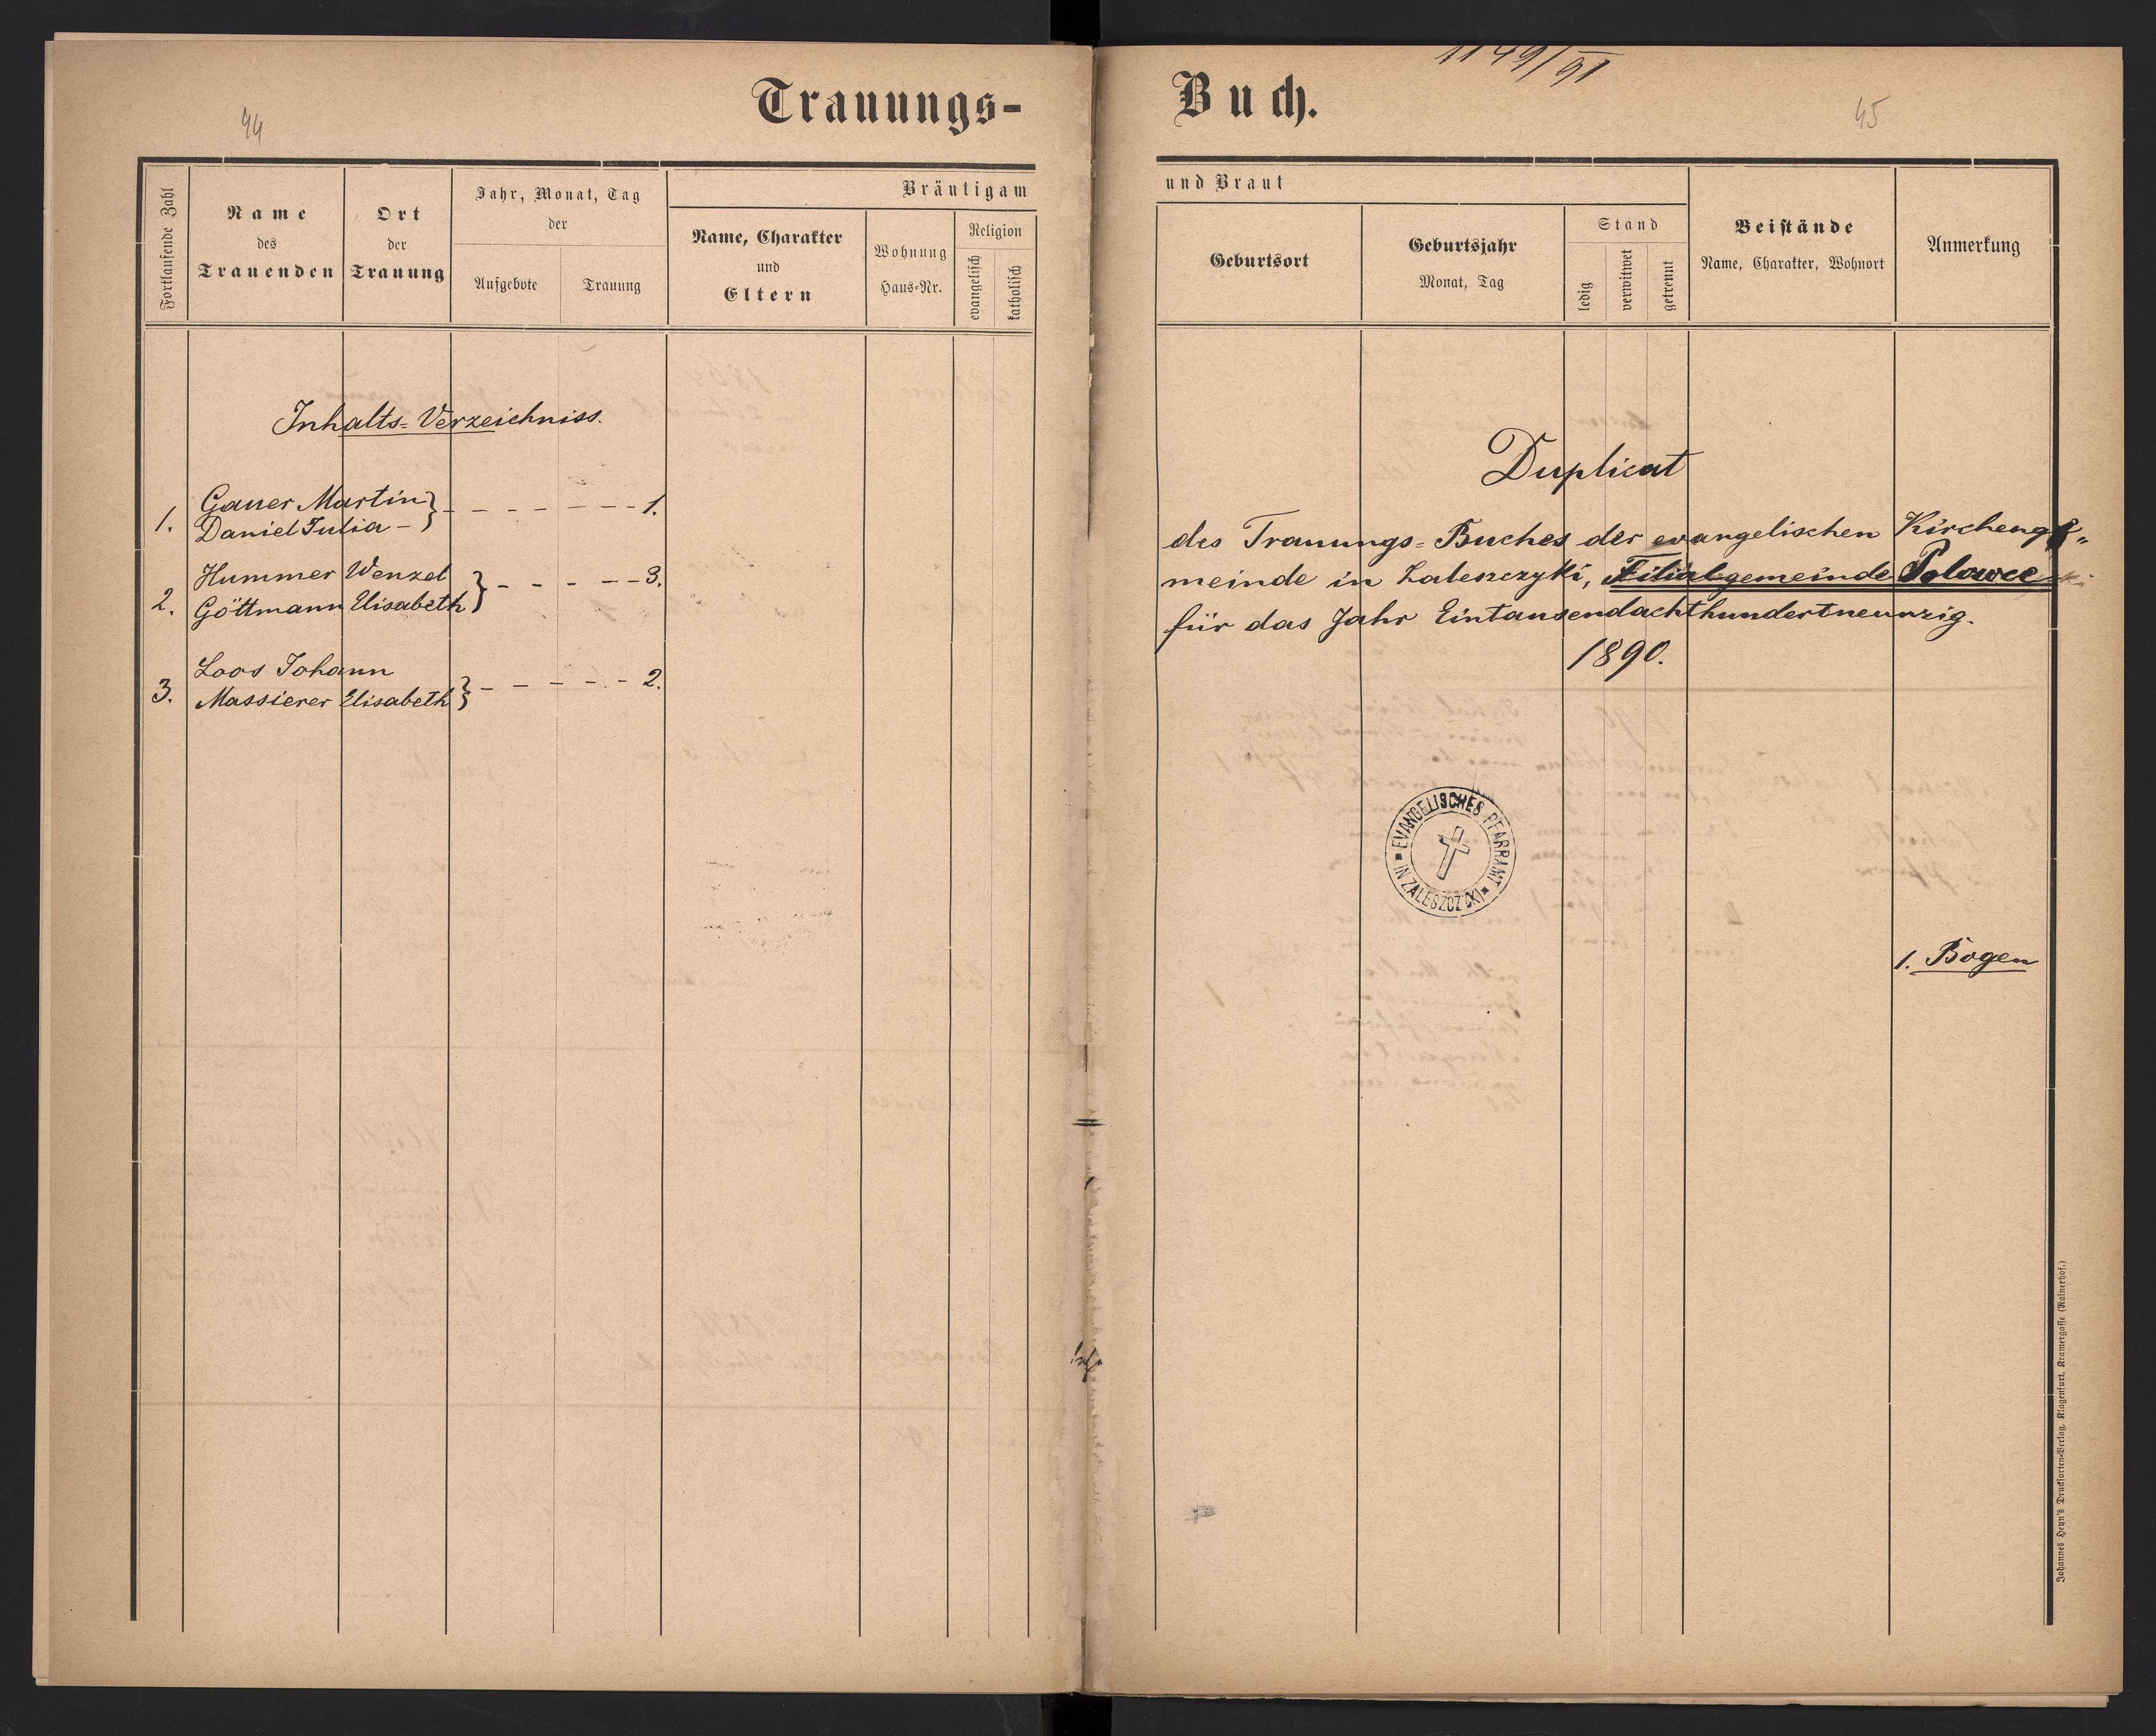 Trauungs-
44
Fortlaufende Zahl
Name
des
Trauenden
Ort
der
Trauung
Jahr, Monat, Tag
der
Aufgebote
Trauung
Bräutigam
Name, Charakter
und
Eltern
Wohnung
Haus-Nr.
Religion
evangelisch
katholisch
Inhalts=Verzeichniss.
1. Gauer Martin
Daniel Julia – } - - - - - - - 1.
2. Hummer Wenzel
Göttmann Elisabeth } - - - - - 3.
3. Loos Johann
Massierer Elisabeth } - - - - - 2.
1149/91
Buch.
45
und Braut
Geburtsort
Geburtsjahr
Monat, Tag
Stand
ledig
verwitwet
getrennt
Beistände
Name, Charakter, Wohnort
Anmerkung
Duplicat
des Trauungs=Buches der evangelischen Kirchenge„
meinde in Zaleszczyki, Filialgemeinde Polowce
für das Jahr Eintausendachthundertneunzig.
1890.
EVANGELISCHES PFARRAMT
IN ZALESZCZYKI
1. Bogen
Johannes Heyn's Drucksorten-Verlag, Klagenfurt, Kramergasse (Rainerhof.)